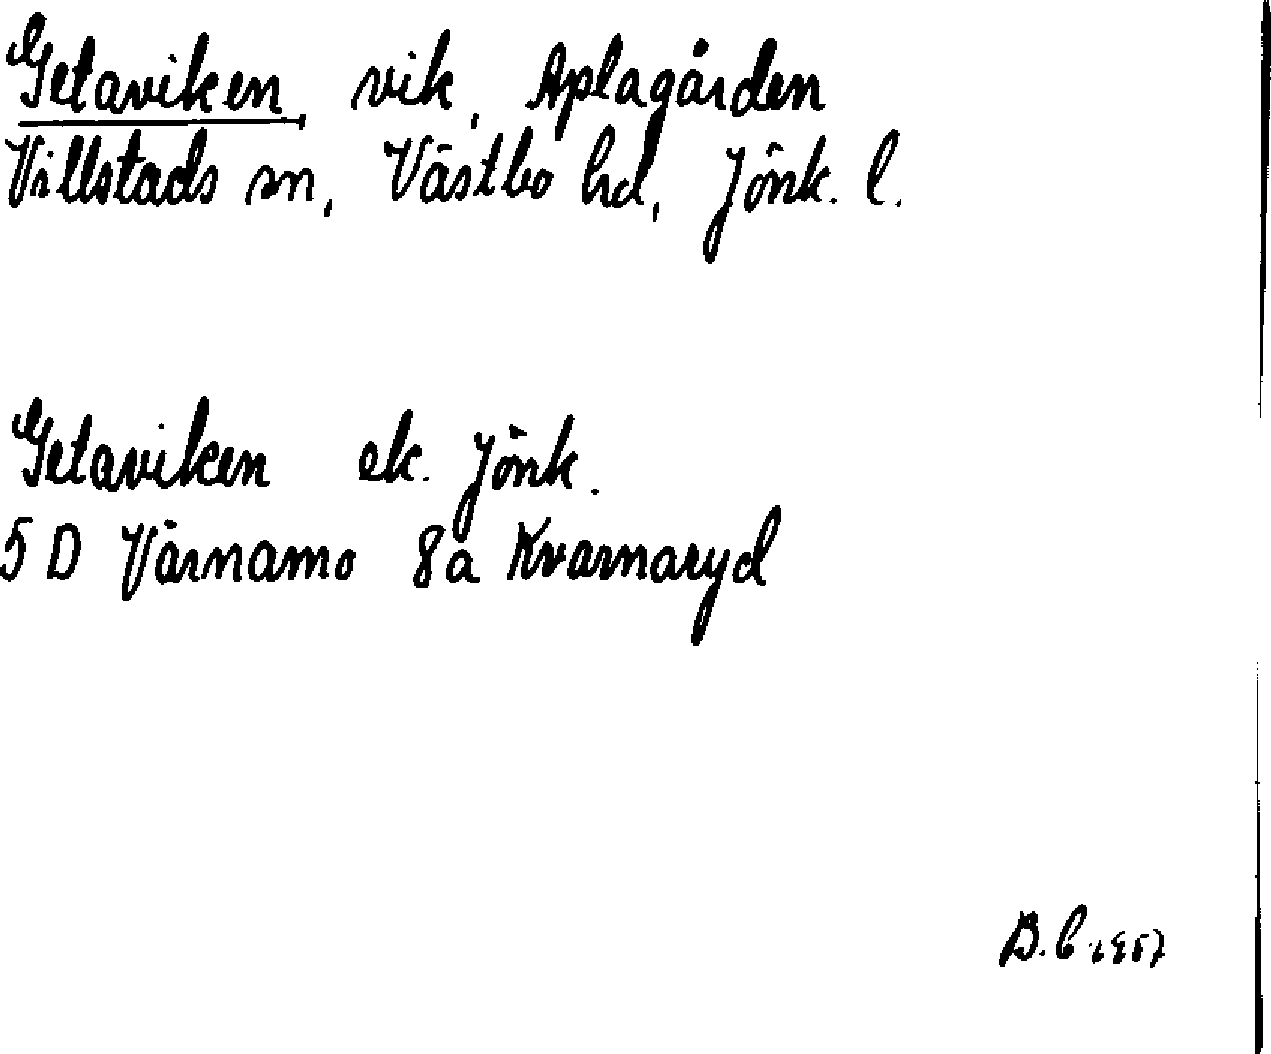 Getaviken, vik, Aplagården
Villstads sn, Västbo hd, Jönk. l.
Getaviken ek. Jönk.
5 D Värnamo 8a Kvarnaryd
B. 1957